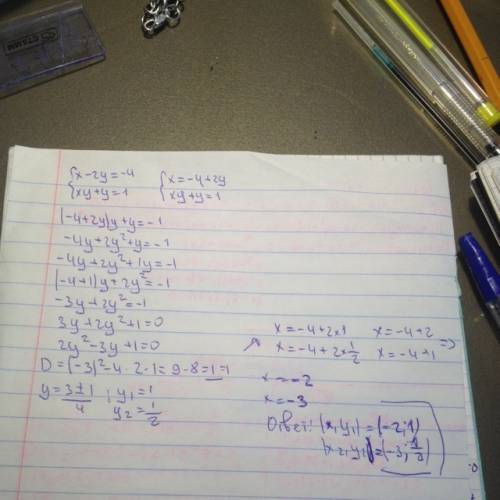 {x-2y=-4 {x=-4+2y
{xy+y=1 {xy+y=1
(-4+2y)y+y=-1
-4y+2y²+y=-1
-4y+2y²+1y=-1
(-4+1)y+2y²=-1
-3y+2y²=-1
3y+2y²+1=0
2y²-3y+1=0
D=(-3)²-4·2·1=9-8=1=1
y=3±1/4; y₁=1
y₂=1/2
x=-4+2*1 x=-4+2
x=-4+2*1/2 x=-4+1 =>
x=-2
x=-3
Ответ: (x₁y₁)=(-2;1)
(x₂y₂)=(-3;1/2)